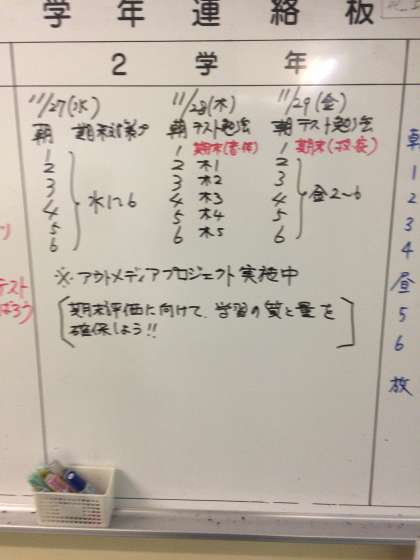 学年連絡板
2学年
11/27(水)
朝 期末対策
1
2
3
4
5
6
水1~6
11/28(木)
朝 テスト勉強会
1 期末(音・体)
2 木1
3 木2
4 木3
5 木4
6 木5
11/29(金)
朝 テスト勉強会
1 期末(技・家)
2
3
4
5
6
金2~6
※アウトメディアプロジェクト実施中
期末評価に向けて、学習の質と量を
確保しよう!!
テスト
ばろう
朝
1
2
3
4
昼
5
6
放